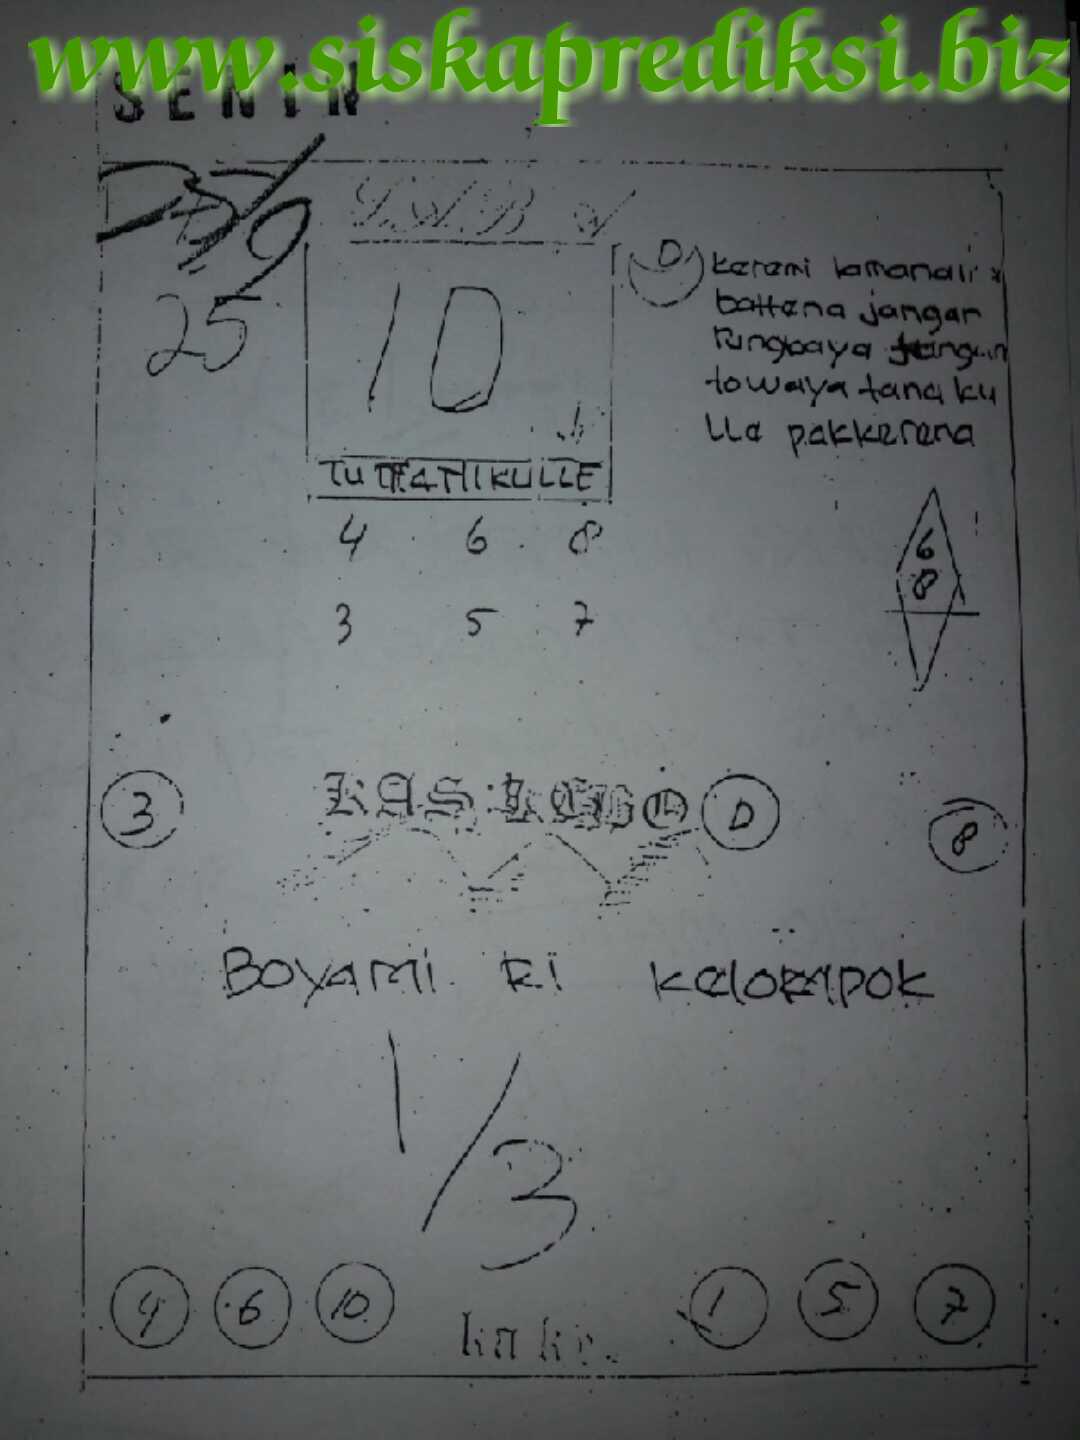 www.siskaprediksi.biz
SENIN
25
10
D
keremi lamanai
battena jangan
towaya tana ku
LLe pakkerena
4 6 8
3 5 7
6
8
3
KAS LEBO
D
8
BOYAMI RI KELOMPOK
1/3
4 6 10
1 5 7